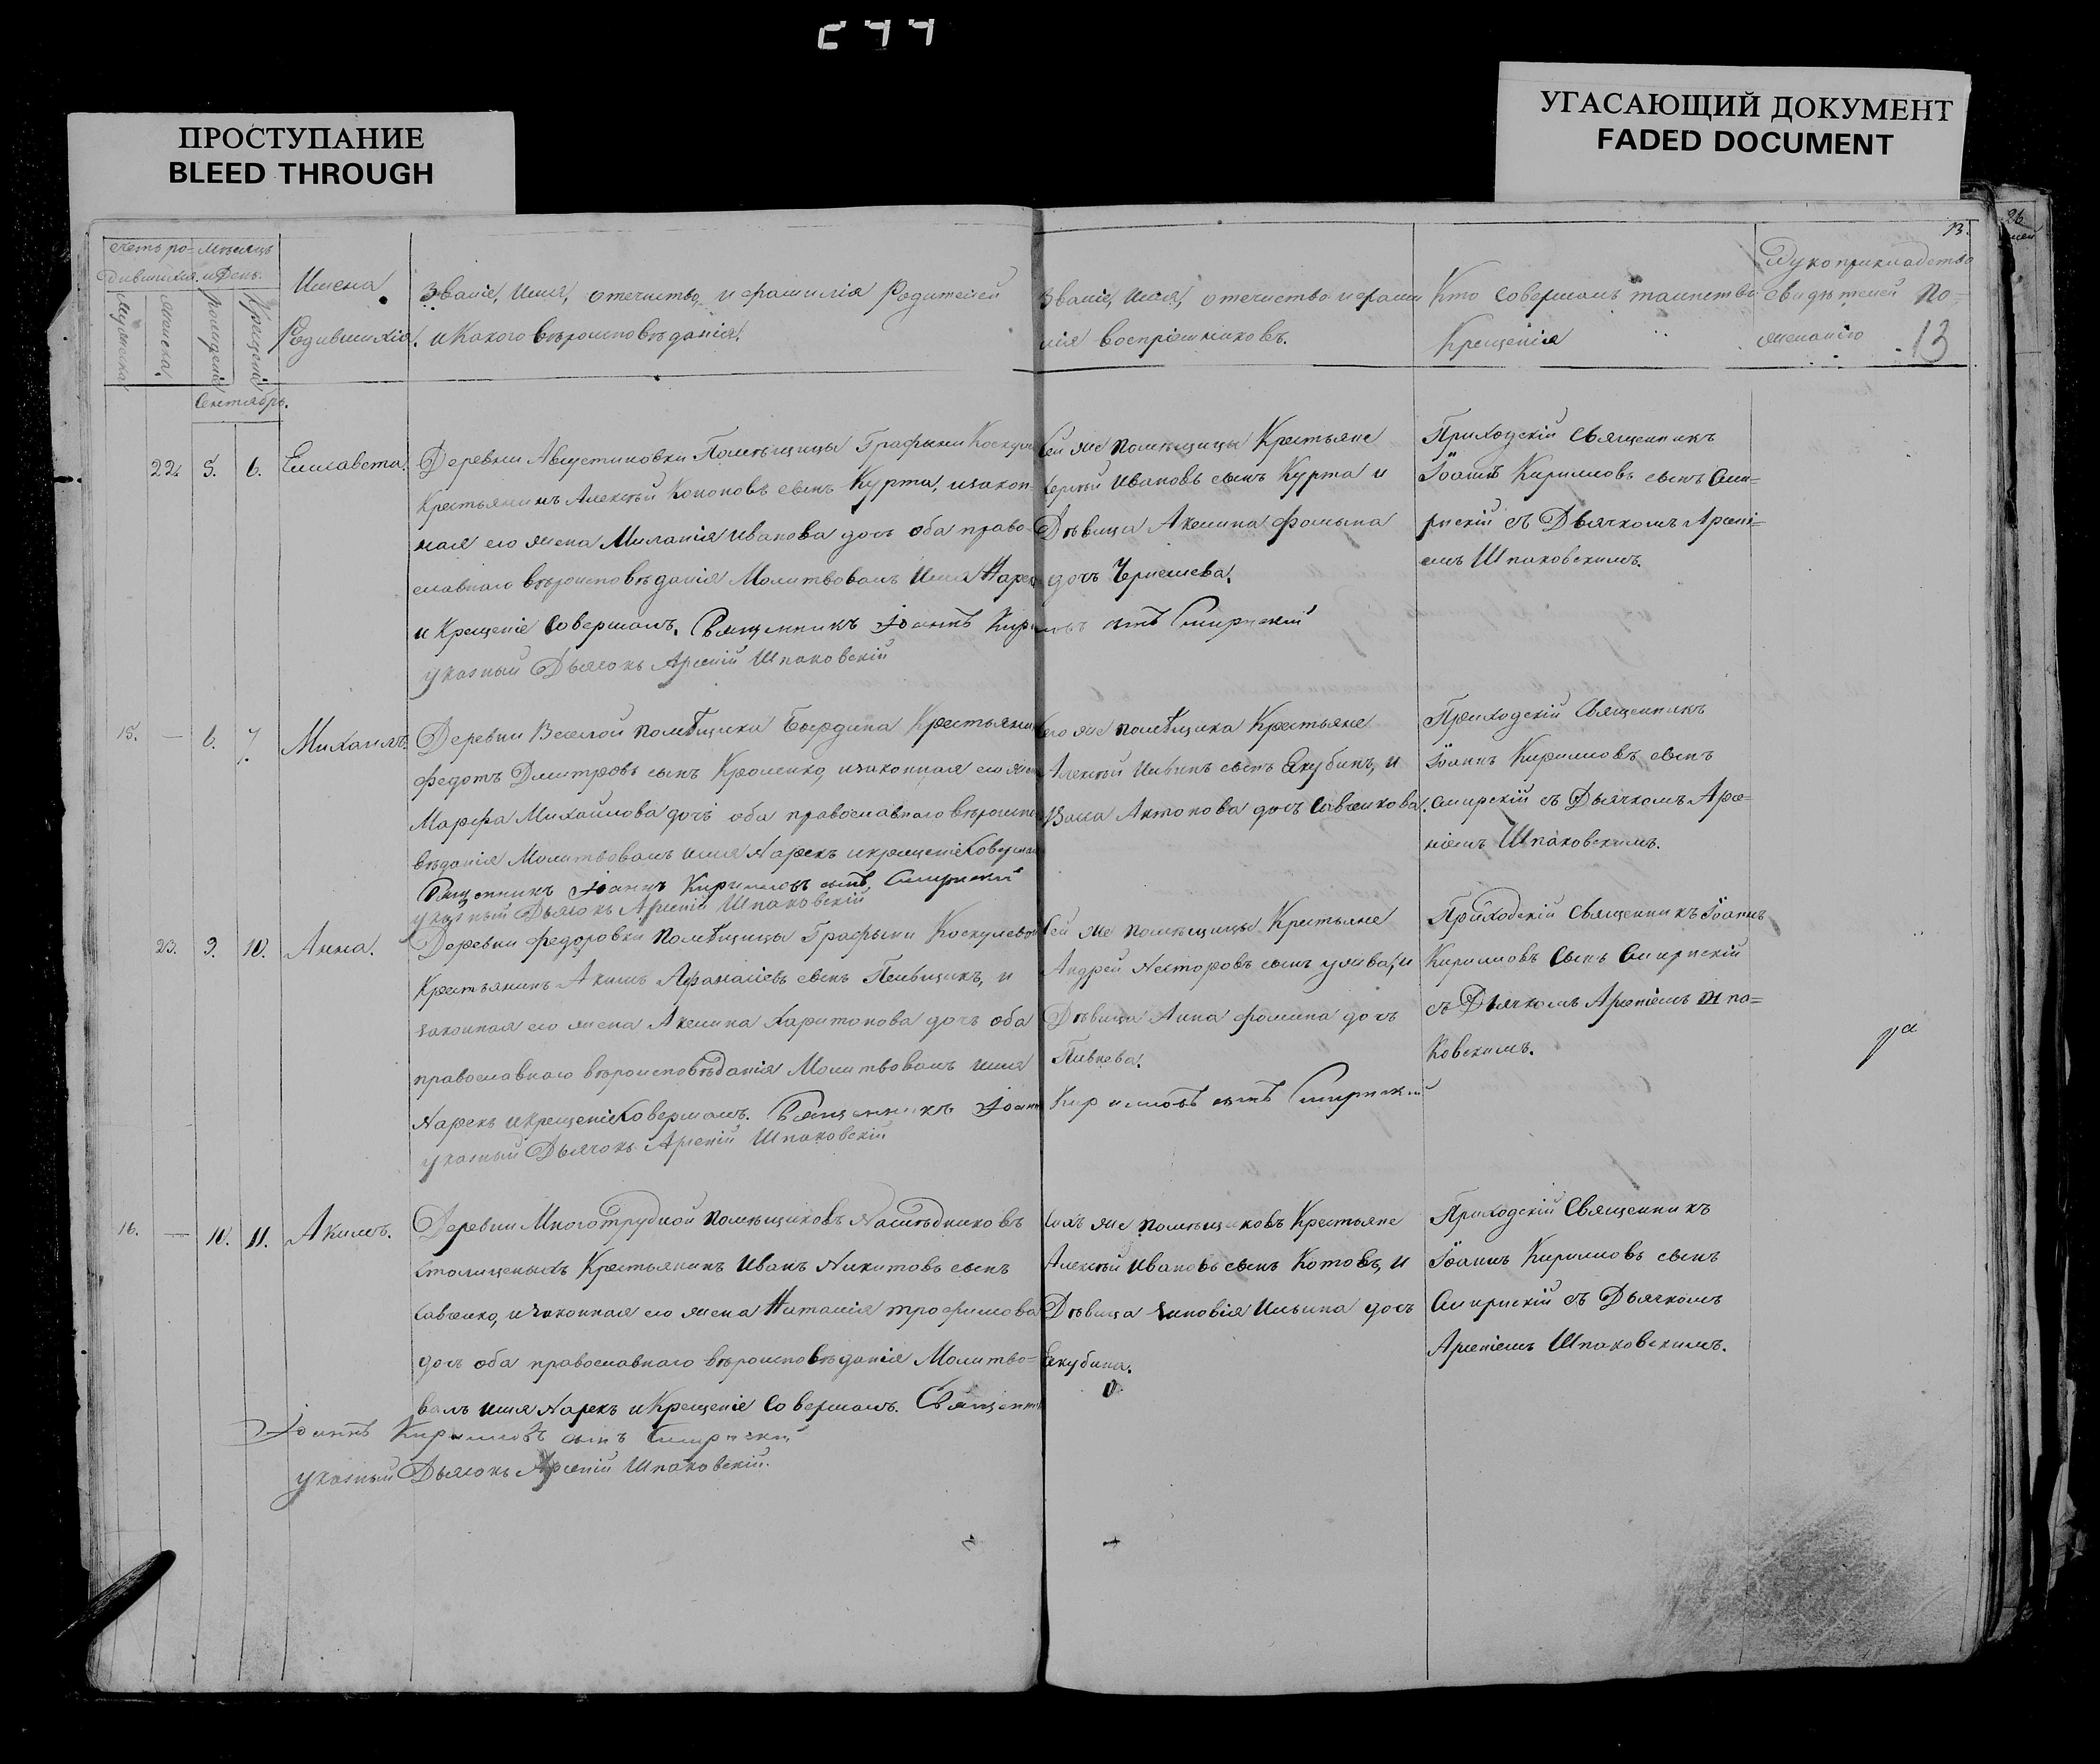 ПРОСТУПАНИЕ
BLEED THROUGH
УГАСАЮЩИЙ ДОКУМЕНТ
FADED DOCUMENT
26
13.
Счетъ ро- мѣсяцъ
дившихся. и День.
Мужеска
Женска.
рожденія
Крещенія
Имена
Родившихся.
Званіе, Имя, отечество, и фамилія Родителей
и Какого вѣроисповѣданія.
Званіе, Имя, отечество и фами
лія воспріемниковъ.
Кто совершалъ таинство
Крещенія
Рукоприкладство
свидѣтелей По-
желанію
13
Сентябрь.
22. 5. 6. Елисавета.
Деревни Августиновки Помѣщицы Графыни
Крестьянинъ Алексѣй Кононовъ сынъ Курта, изакон-
ная его жена Миланія Иванова дочь оба право-
славнаго вѣроисповѣданія Молитвовалъ Имя Нарек
и Крещеніе Совершалъ. Священникъ Іоаннъ Кириловъ сынъ Смирнскій
указный Дьячокъ Арсеній Шпаковскій
Сей же помѣщицы Крестьяне
Сергѣй Ивановъ сынъ Курта и
Дѣвица Акелина Фомына
дочь Чернешева.
Приходскій Священникъ
Іоаннъ Кириловъ сынъ Сми-
рнскій съ Дьячкомъ Арсені-
емъ Шпаковскимъ.
15. — 6. 7. Михаилъ.
Деревни Веселой помѣщика Бырдина Крестьянин
Федотъ Дмитровъ сынъ Кроленко, изаконная его жен
Марфа Михайлова дочь оба православнаго вѣроиспо
вѣданія Молитвовалъ имя Нарекъ икрещеніе Совершал
Священникъ Іоаннъ Кириловъ сынъ Смирнскій
указный Дьячокъ Арсеній Шпаковскій
Его же помѣщика Крестьяне
Алексѣй Ильинъ сынъ Якубинъ, и
Васса Антонова дочь Савченкова.
Приходскій Священникъ
Іоаннъ Кириловъ сынъ
Смирскій съ Дьячкомъ Арсе-
ніемъ Шпаковскимъ.
23. 9. 10. Анна.
Деревни Федоровки Помѣщицы Графыни Коскулевой
Крестьянинъ Акимъ Афанасіевъ сынъ Пельщикъ, и
законная его жена Акелина Харитонова дочь оба
православнаго вѣроисповѣданія Молитвовалъ имя
Нарекъ икрещеніе Совершалъ. Священникъ Іоаннъ Кириловъ сынъ Смирнскій
указный Дьячокъ Арсеній Шпаковскій
Сей же помѣщицы Крестьяне
Андрей Несторовъ сынъ и
Дѣвица Анна Фомина дочь
Пивнева.
Приходскій Священникъ Іоаннъ
Кириловъ Сынъ Смирнскій
съ Дьячкомъ Арсеніемъ Шпа-
Ковскимъ.
16. — 10. 11. Акимъ.
Деревни Многотрудной помѣщиковъ Наслѣдниковъ
Крестьянинъ Иванъ Никитовъ сынъ
Савченко, изаконная его жена Наталія трофимова
дочь оба православнаго вѣроисповѣданія Молитво-
валъ имя Нарекъ и Крещеніе Совершалъ. Священни
Іоаннъ Кириловъ сынъ Смирнскій
указный Дьячокъ Арсеній Шпаковскій.
Сихъ же помѣщиковъ Крестьяне
Алексѣй Ивановъ сынъ Котовъ, и
Дѣвица Зиновія Ильина дочь
Екубина.
Приходскій Священникъ
Іоаннъ Кириловъ сынъ
Смирнскій съ Дьячкомъ
Арсеніемъ Шпаковскимъ.